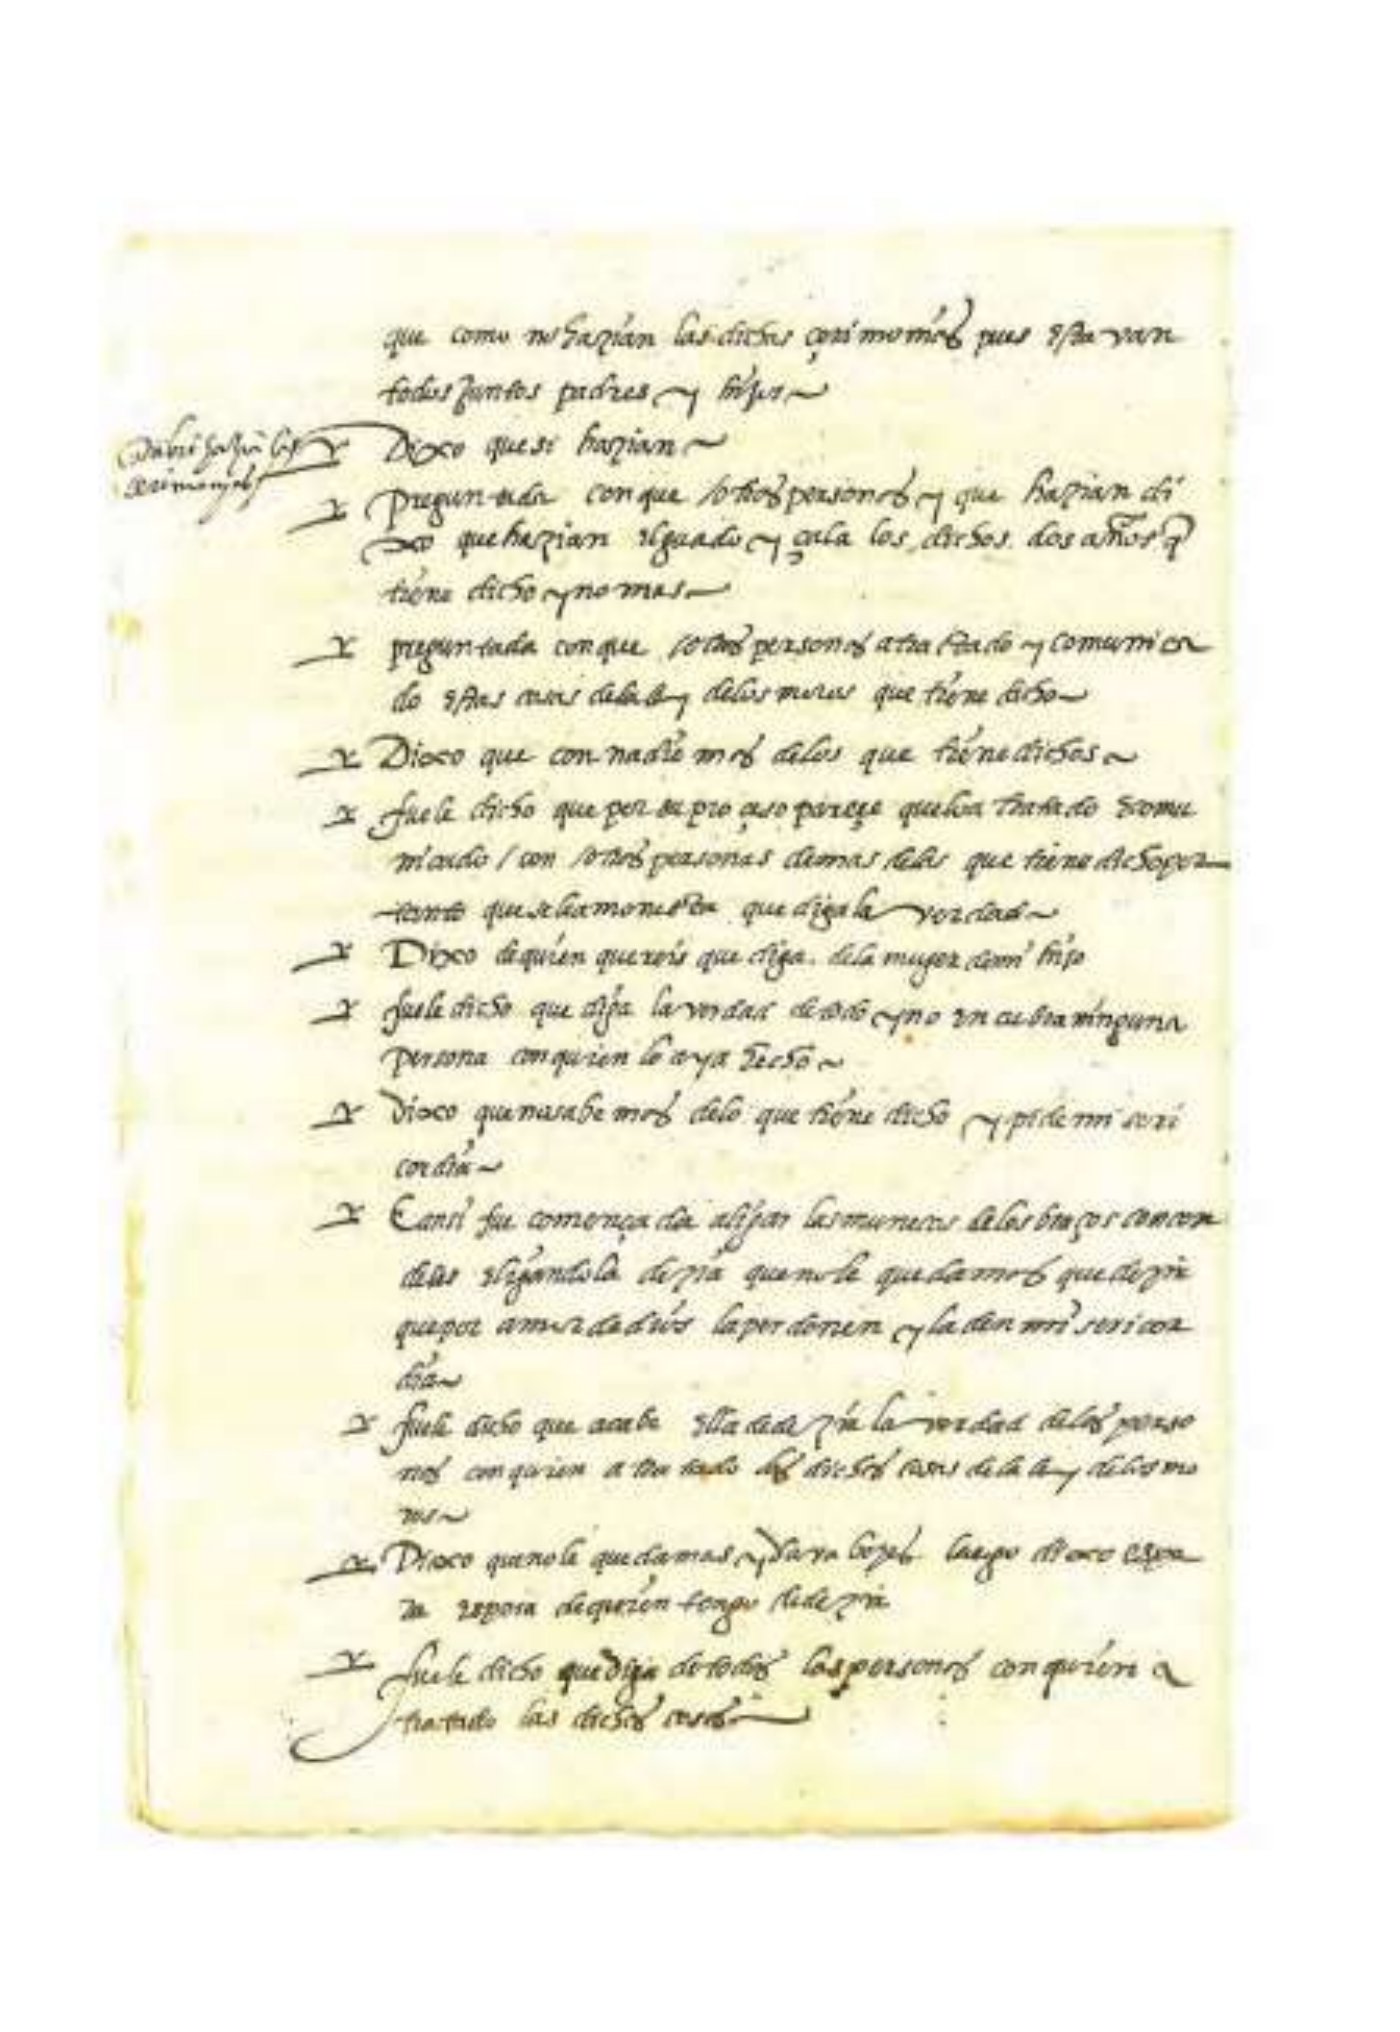 que como no hazian las dichas çerimonias pues estavan
todos juntos padres y hijos
hazia las
çerimonias
Dixo que si hazian
Preguntada con que otras personas y que hazian di
xo que hazian el guado y çala los dichos dos años q
tiene dicho y no mas
preguntada con que otras personas a tractado y comunica
do estas cosas de la ley de los moros que tiene dicho
Dixo que con nadie mas de los que tiene dichos
fuele dicho que por su proçeso pareçe que lo a tratado e comu
nicado / con otras personas demas delas que tiene dicho por
tanto que se le amonesta que diga la verdad
Dixo de quien quereis que diga. de la muger de mi hijo
fuele dicho que diga la verdad de todo y no encubra ninguna
persona con quien lo aya hecho
dixo que no sabe mas delo que tiene dicho y pide miseri
cordia
E ansi fue començada a ligar las munecas de los braços con cor
deles e ligandola dezia que no le queda mas que dezir
que por amor de dios la perdonen y la den misericor
dia
fuele dicho que acabe ella de dezir la verdad de las perso
nas con quien a tratado las dichas cosas de la ley de los mo
ros
Dixo que no le queda mas y dava bozes luego dixo espe
ra reposa de quien tengo de dezir
fuele dicho que diga de todas las personas con quien a
tratado las dichas cosas